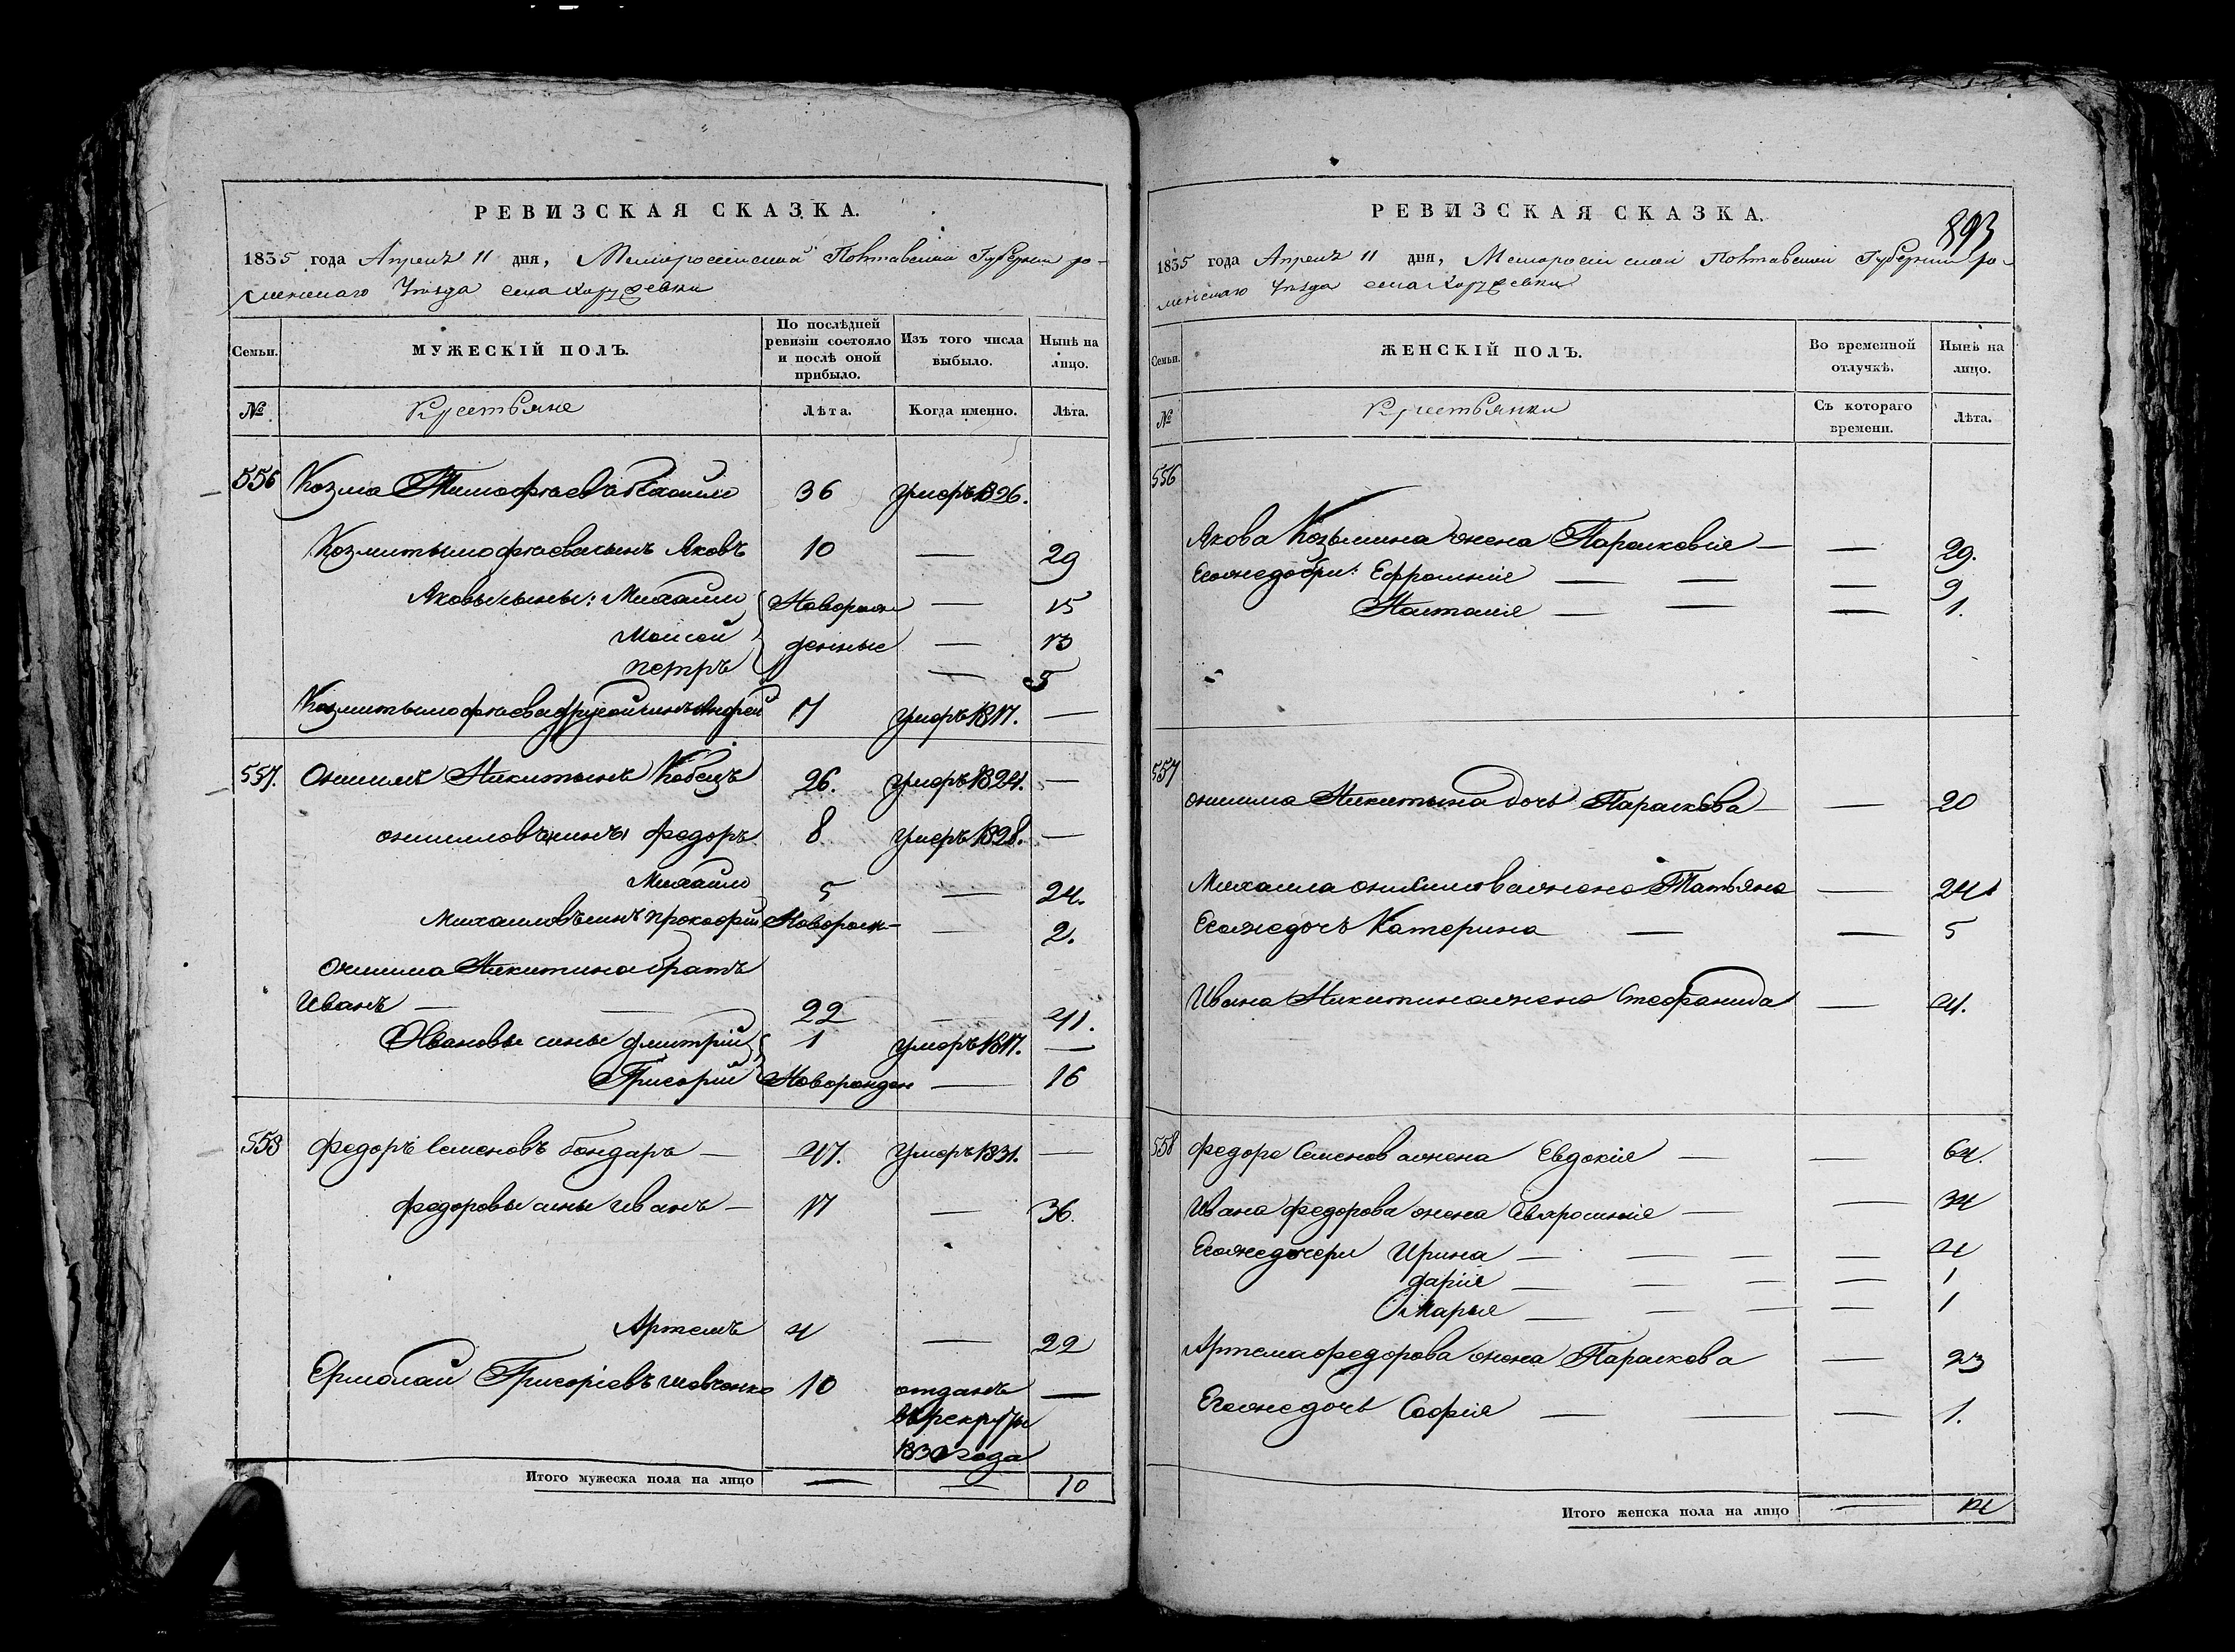 РЕВИЗСКАЯ СКАЗКА.
1835 года Апреля 11 дня, Малоросійской Полтавской Губерніи ро-
менскаго Уезда села Коружевки
Семьи. МУЖЕСКІЙ ПОЛЪ. По послѣдней ревизіи состояло и послѣ оной прибыло. Изъ того числа выбыло. Нынѣ на лицо.
№ Крестьяне Лѣта. Когда именно. Лѣта.
556 Козма Тимофѣевъ 36 умеръ 1826.
Козми тымофѣева сынъ Яковъ 10 — 29
Яковы сыны: Михаилъ Новорож — 15
Моисей денные — 13
петръ — 5
Козми тымофѣева другой сынъ Андрей 17 умеръ 1817. —
557. Онисимъ Никитынъ Кобецъ 26. умеръ 1824. —
онисимовы сыны Федоръ 8 умеръ 1828. —
Михаилъ 5 — 24.
Михаиловъ сынъ прокофій Новорож- — 2.
Онисима Никитина братъ
Иванъ — — 22 — 41.
Ивановы сыны дмитрій 1 умеръ 1817. —
Григорій Новорожден — 16
558 Федоръ Семеновъ бондарь — 47. умеръ 1831. —
Федоровы сыны Иванъ — 17 — 36.
Артемъ 4 — 22
Ермолай Григоріевъ шевченко 10 отданъ —
въ рекруты
1830 года
Итого мужеска пола на лицо — — 10
893
РЕВИЗСКАЯ СКАЗКА.
1835 года Апреля 11 дня, Малоросійской Полтавской Губерніи ро-
менскаго Уезда села Коружевки
Семьи. ЖЕНСКІЙ ПОЛЪ. Во временной отлучкѣ. Нынѣ на лицо.
№ Крестьянки Съ котораго времени. Лѣта.
556
Якова Козьмина жена Параскевія — — 29.
Его же дочери: Ефросинія — — — 9
Настасія — — — 1.
557
онисима Никитына дочь Параскева — — 20
Михаила онисимова жена Татьяна — 24
Его же дочь Катерина — — 5
Ивана Никитина жена Стефанида — 41.
558 Федора Семенова жена Евдокія — — 64.
Ивана федорова жена Евфросинія — — 34
Его же дочери Ирина — — — — 4
дарія — — — — 1
Марья — — — — 1
Артема федорова жена Параскева — 23
Его же дочь Софія — — — 1.
Итого женска пола на лицо — 14